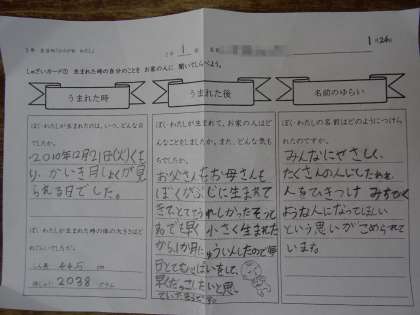 1月24日
しゅざいカード① 生まれた時の自分のことを お家の人に 聞いてしらべよう。
うまれた時
うまれた後
名前のゆらい
ぼく・わたしが生まれたのは、いつ、どんな日
でしたか。
2010年12月21日(火)くも
り、かいき月しょくが見
られる日でした。
ぼく・わたしが生まれた時の体の大きさはどれ
しん長 44.5 cm
体じゅう 2038 グラム
ぼく・わたしが生まれた後、お家の人はど
んなことをしましたか。また、どんな気も
ちでしたか。
お父さんもお母さんも
ぼくがぶじに生まれて
きて、とてもうれしかったそう
でも早く小さく生まれた
から1か月にゅういんしたので毎
日とてもしんぱいをして、
早くだっこしたいと思っ
ていたそうです。
ぼく・わたしの名前はどのようにつけら
れたのですか。
みんなにやさしく、
たくさんの人にしたわれ、
人をひきつけ みちびく
ような人になってほしい
という思いがこめられて
います。